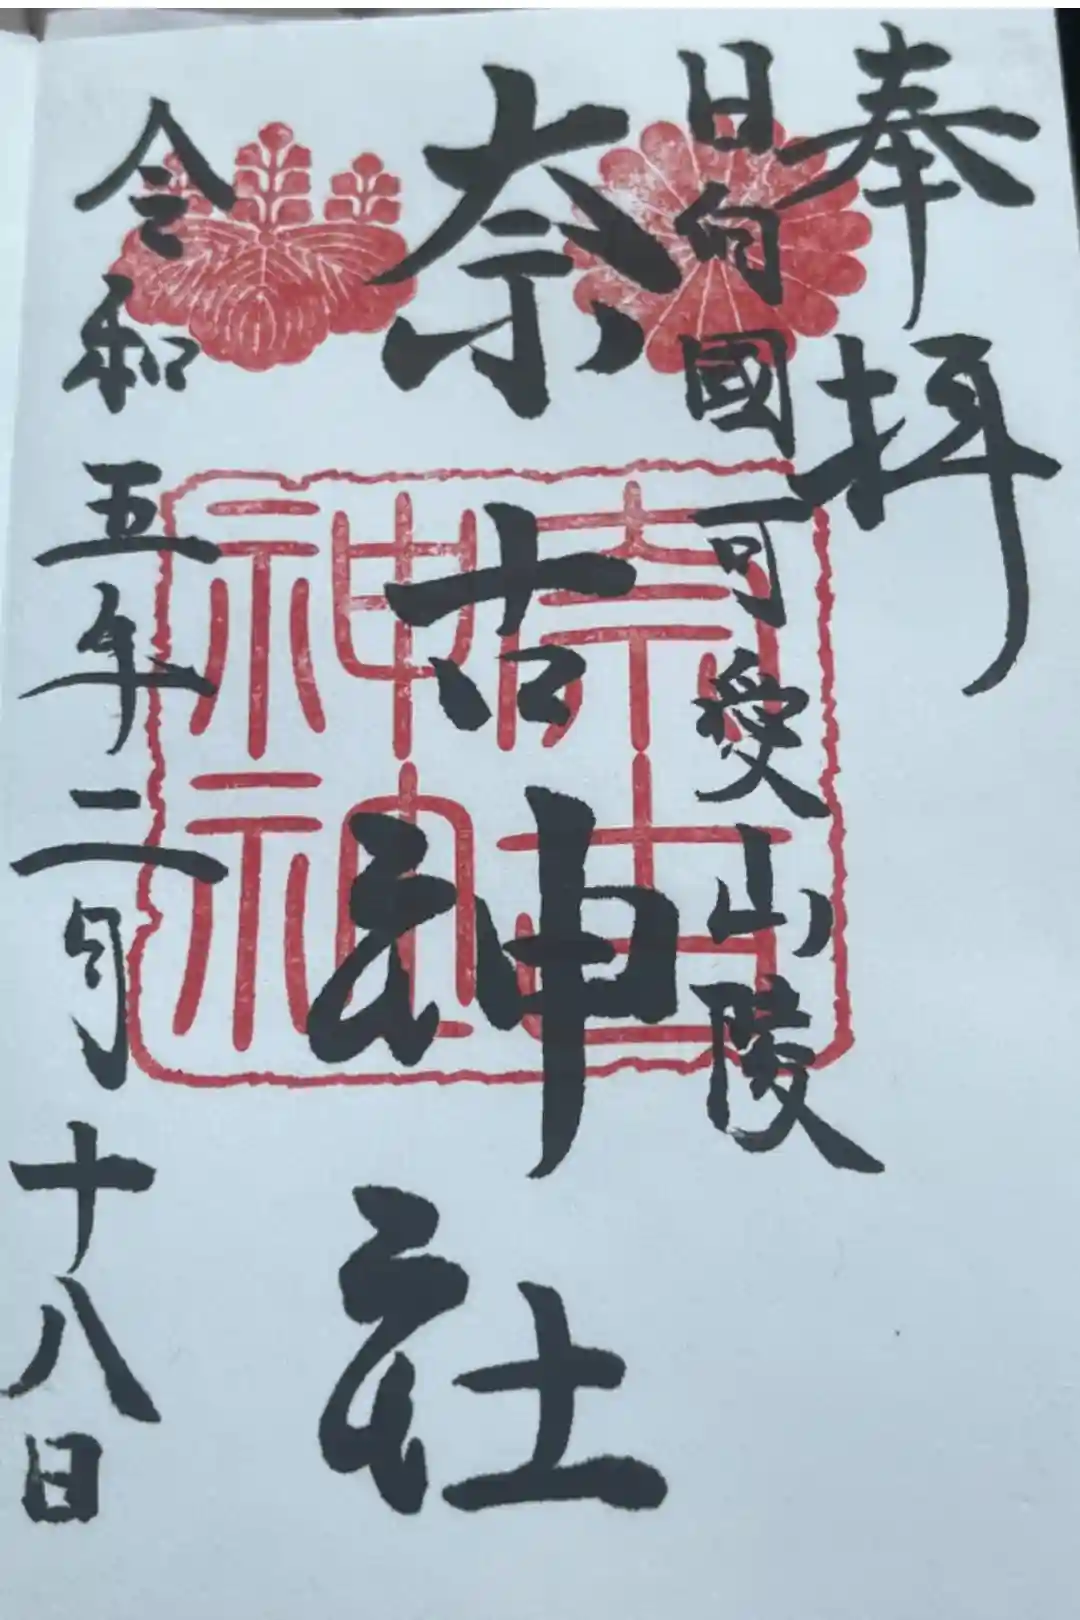 奉拝
日向國可愛山陵
奈古神社
令和五年二月十八日
奈古
神